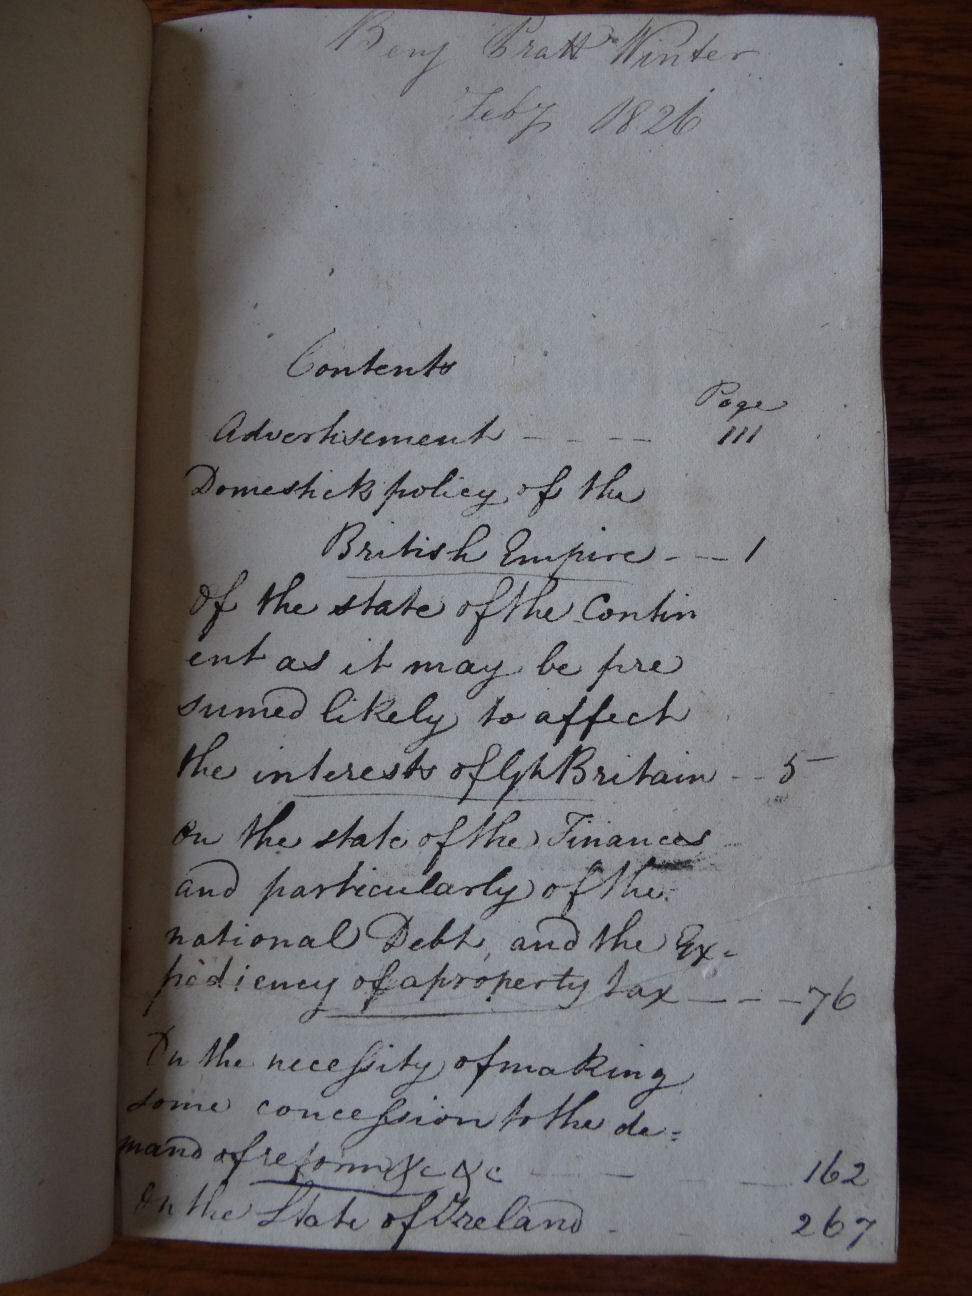 Benj Pratt Winter
Feby 1826
Contents
Page
Advertisement - - - - 111
Domestick policy of the
British Empire - - - 1
Of the state of the Contin
ent as it may be pre
sumed likely to affect
the interests of Gt Britain - - 5
On the state of the Finances
and particularly of the
national Debt, and the Ex=
pediency of a property tax - - - 76
On the necessity of making
some concession to the de=
mand of reform &c &c - - - - 162
On the State of Ireland - - 267